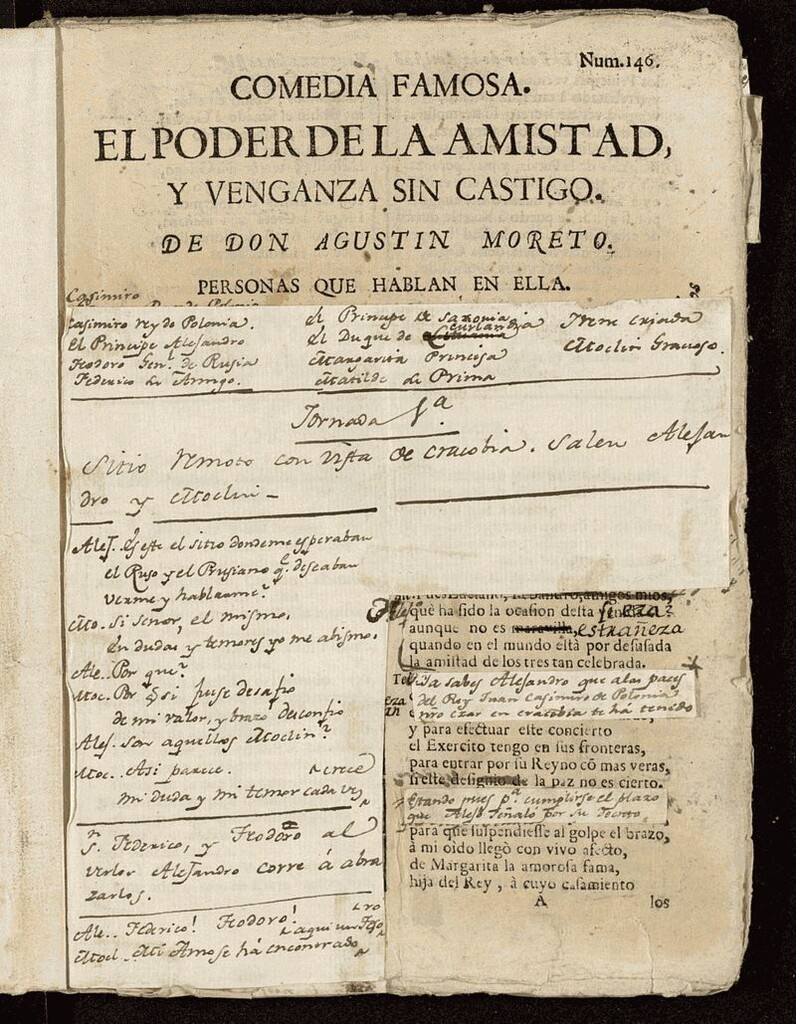 Num.146.
COMEDIA FAMOSA.
EL PODER DE LA AMISTAD,
Y VENGANZA SIN CASTIGO.
DE DON AGUSTIN MORETO.
PERSONAS QUE HABLAN EN ELLA.
Casimiro
Casimiro rey de Polonia.
El Principe Alejandro
Teodoro Gen. de Rusia
Federico su Amigo.
el Principe de Saxonia
el Duque de Curlandia
Margarita Princesa
Matilde su Prima
Irene criada
Moclin Gracioso.
Jornada 1ª
Sitio remoto con vista de Cracobia. Salen Alejan
dro y Moclin
Alej. Es este el sitio donde me esperaban
el Ruso y el Prusiano q.e deseaban
verme y hablarme?
Mo. Si Señor, el mismo.
En dudas y temores yo me abismo.
Ale. Por que?
Moc. Por si fuese desafio
de mi valor, y brazo desconfio
Alej. Son aquellos Moclin?
Moc. Asi parece.
crece
mi duda y mi temor cada vez
S. Federico, y Teodoro al
verlos Alejandro corre á abra
zarlos.
Ale. Federico! Teodoro!
Mocl. Mi Amo se há encontrado
aqui un Teso
ro
amigos mios,
què ha sido la ocasion desta fineza?
aunque no es estrañeza
quando en el mundo està por desusada
la amistad de los tres tan celebrada.
Ya sabes Alejandro que a las paces
del Rey Juan Casimiro de Polonia
nro Czar en Cracobia te há tenido
y para efectuar este concierto
el Exercito tengo en sus fronteras,
para entrar por su Reyno cõ mas veras,
si este designio de la paz no es cierto.
Estando pues p.a cumplirse el plazo
que Alejo señaló por su Decreto
para que suspendiesse al golpe el brazo,
à mi oido llegò con vivo afecto,
de Margarita la amorosa fama,
hija del Rey, à cuyo casamiento
A
los